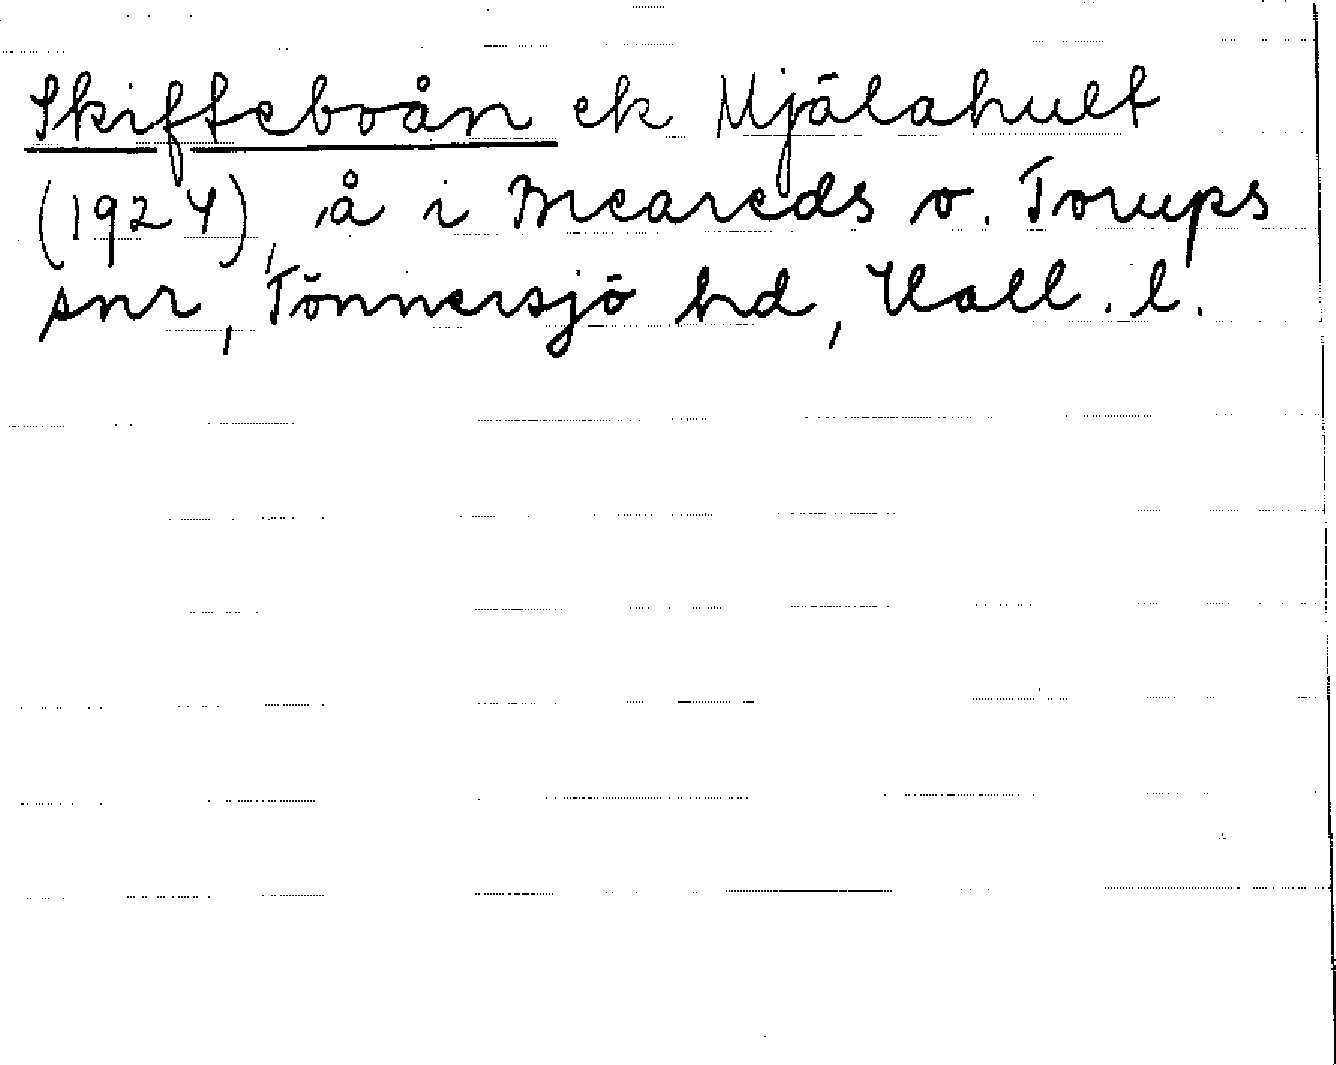 Skifteboån ek Mjälahult
(1924), å i Breareds o. Torups
snr, Tönnersjö hd, Hall. l.